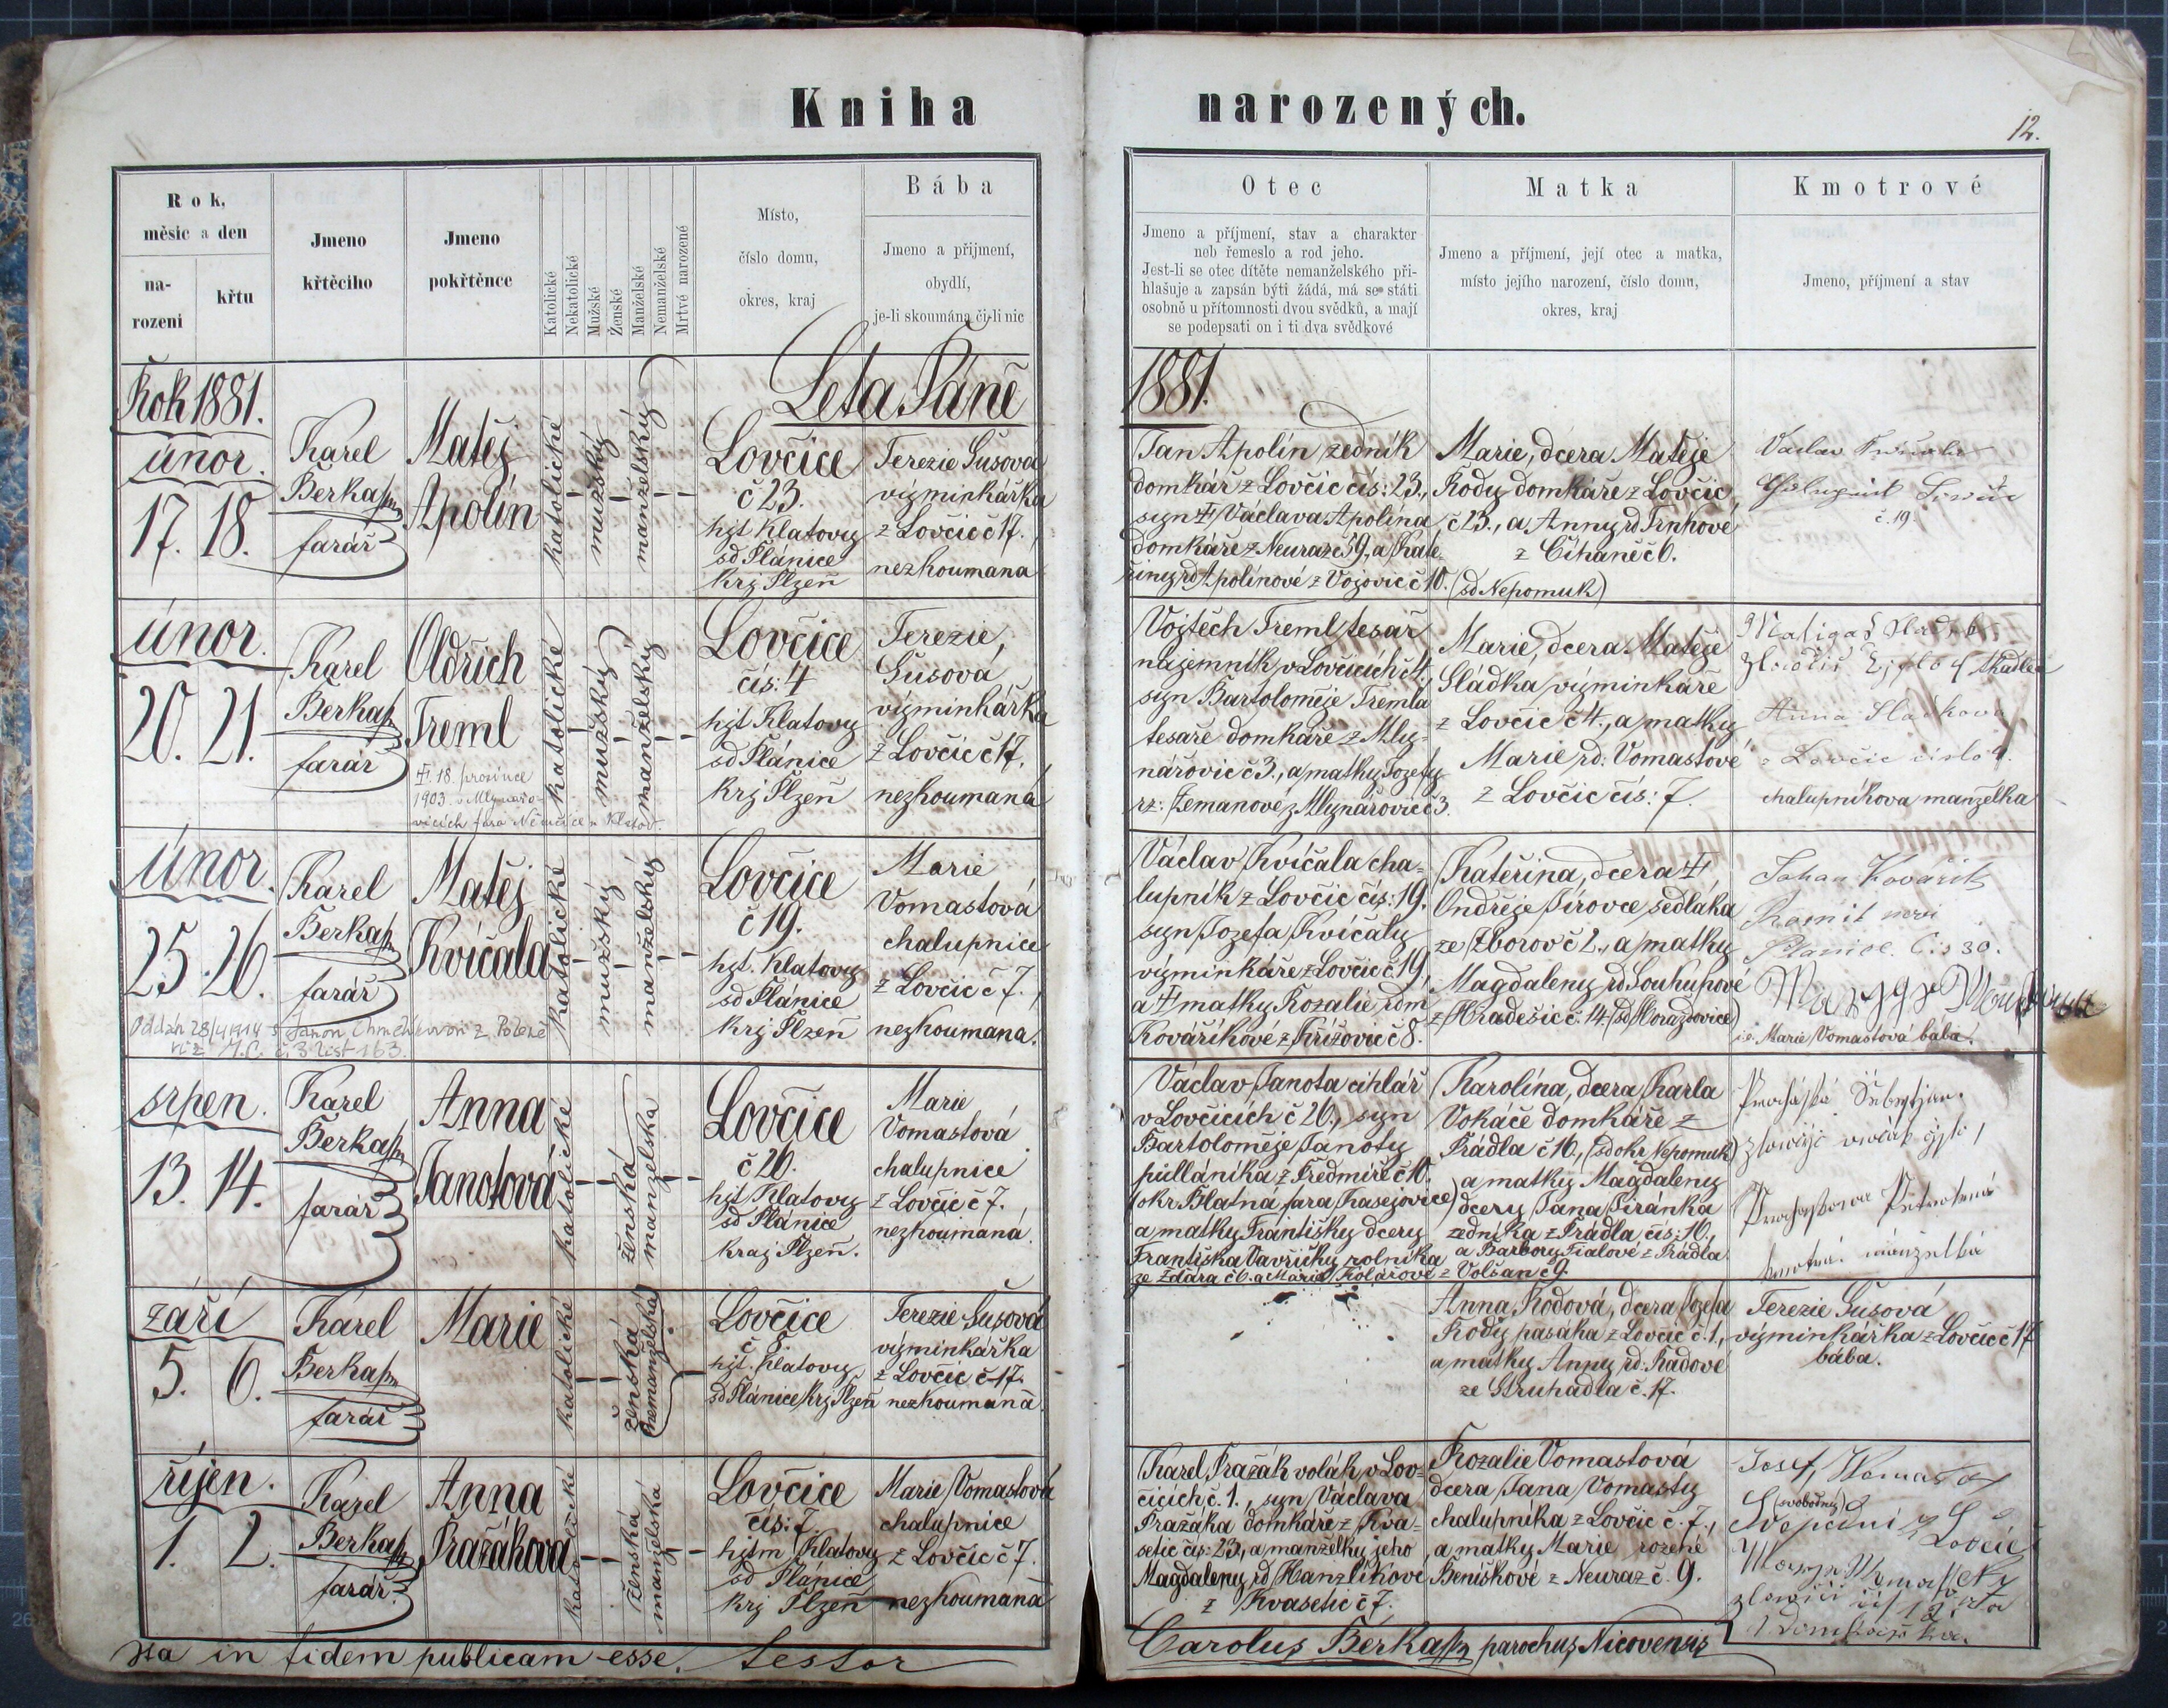 Kniha narozených.
12.
Rok, měsíc a den
na-
rozeni
křtu
Jmeno
křtěcího
Jmeno
pokřtěnce
Katolické
Nekatolické
Mužské
Ženské
Manželské
Nemanželské
Mrtvé narozené
Místo,
číslo domu,
okres, kraj
Bába
Jmeno a přijmení,
obydlí,
je-li skoumána čili nic
Otec
Jmeno a příjmení, stav a charakter
neb řemeslo a rod jeho.
Jest-li se otec dítěte nemanželského při-
hlašuje a zapsán býti žádá, má se státi
osobně u přítomnosti dvou svědků, a mají
se podepsati on i ti dva svědkové
Matka
Jmeno a příjmení, její otec a matka,
místo jejího narození, číslo domu,
okres, kraj
Kmotrové
Jmeno, příjmení a stav
Leta Páně 1881.
Rok 1881.
únor.
17. 18.
Karel
Berka
farář
Matěj
Apolín
katolické
mužský
manželský
Lovčice
č 23.
hjt Klatovy
sd Plánice
krj Plzeň
Terezie Šusová
výminkářka
z Lovčic č 17.
nezkoumana
Jan Apolín zedník
domkář z Lovčic čís: 23.,
syn Václava Apolína
domkáře z Neuraz č 9, a Kate-
řiny rd Apolínové z Vojovic č 10.
Marie, dcera Matěje
Rody domkáře z Lovčic
č 23., a Anny rd Trnkové
z Číhaně č 6.
(sd Nepomuk)
Václav
č. 19.
únor.
20. 21.
Karel
Berka
farář
Oldřich
Treml
18. prosince
1903 v Mlynářo-
vicích fara Němčice u Klatov.
katolické
mužský
manželský
Lovčice
čís: 4
hjt Klatovy
sd Plánice
krj Plzeň
Terezie,
Šusová
výminkářka
z Lovčic č 17.
nezkoumaná
Vojtěch Treml tesař
nájemník v Lovčicích č 4.
syn Bartoloměje Tremla
tesaře domkáře z Mly-
nářovic č 3., a matky Jozefy
rz: Zemanové z Mlynářovic č 3.
Marie, dcera Matěje
Sládka výminkáře
z Lovčic č 4., a matky
Marie rd. Vomastové
z Lovčic čís: 7.
Anna Sladkova
z Lovčic čislo 4.
chalupníkova manželka
únor.
25. 26.
Karel
Berka
farář
Matěj
Kvíčala
Oddán 28/4 1914 s Janou z
list 163.
katolické
mužský
manželský
Lovčice
č 19.
hjt. Klatovy
sd Plánice
krj Plzeň
Marie
Vomastová
chalupnice
z Lovčic č 7.,
nezkoumana.
Václav Kvíčala cha-
lupník z Lovčic čís: 19.
syn Jozefa Kvíčaly
výminkáře z Lovčic č. 19,
a matky Rozalie rdm
Kovaříkové z Křížovic č 8.
Kateřina, dcera
Ondřeje Jírovce sedláka
ze Zborov č 2., a matky
Magdaleny rd Soukupové
z Hradešic č. 14. (sd Horazdovice)
Johan Kovářik
Planice. Čis 30.
Marie Vomastová bába.
srpen.
13. 14.
Karel
Berka
farář
Anna
Janotová
katolické
ženská
manželska
Lovčice
č 26.
hjt Klatovy
sd Plánice
kraj Plzeň.
Marie
Vomastová
chalupnice
z Lovčic č 7.
nezkoumaná.
Václav Janota cihlář
v Lovčicích č 26., syn
Bartoloměje Janoty
půlláníka z Předmíře č 10.
(okr. Blatná fara Kasejovice)
a matky Františky dcery
Františka Vavřičky rolníka
ze Zdára č 6. a Marie Kolářové z Volšan č 9.
Karolína, dcera Karla
Vokáče domkáře z
Prádla č 16., (sd okr Nepomuk)
a matky Magdaleny
dcery Jana Piránka
zedníka z Prádla čís: 16.,
a Barbory Fialové z Prádla
září
5. 6.
Karel
Berka
farář
Marie
katolické
ženská
nemanželská
Lovčice
č 8.
hjt. Klatovy
sd Plánice krj Plzeň
Terezie Šusová
výminkářka
z Lovčic č 17.
nezkoumaná
Anna Rodová, dcera Jozefa
Rody pasáka z Lovčic č. 1.,
a matky Anny rd: Radové
ze Struhadla č. 17.
Terezie Šusová
výminkářka z Lovčic č 17
bába.
říjen.
1. 2.
Karel
Berka
farář
Anna
Pražáková
katolické
ženská
manželská
Lovčice
čís: 7.
hjtm Klatovy
sd Planice
krj Plzeň
Marie Vomastová
chalupnice
z Lovčic č 7.
nezkoumaná
Karel Pražák volák v Lov-
čicích č. 1., syn Václava
Pražáka domkáře z Kva-
setic čís: 23, a manželky jeho
Magdaleny rd Hanzlíkové
z Kvasetic č 7.
Rozalie Vomastová
dcera Jana Vomasty
chalupníka z Lovčic č. 7.,
a matky Marie rozené
Beniškové z Neuraz č. 9.
Josef
(svobodný)
Ita in fidem publicam esse. testor
Carolus Berka parochus Nicovensis